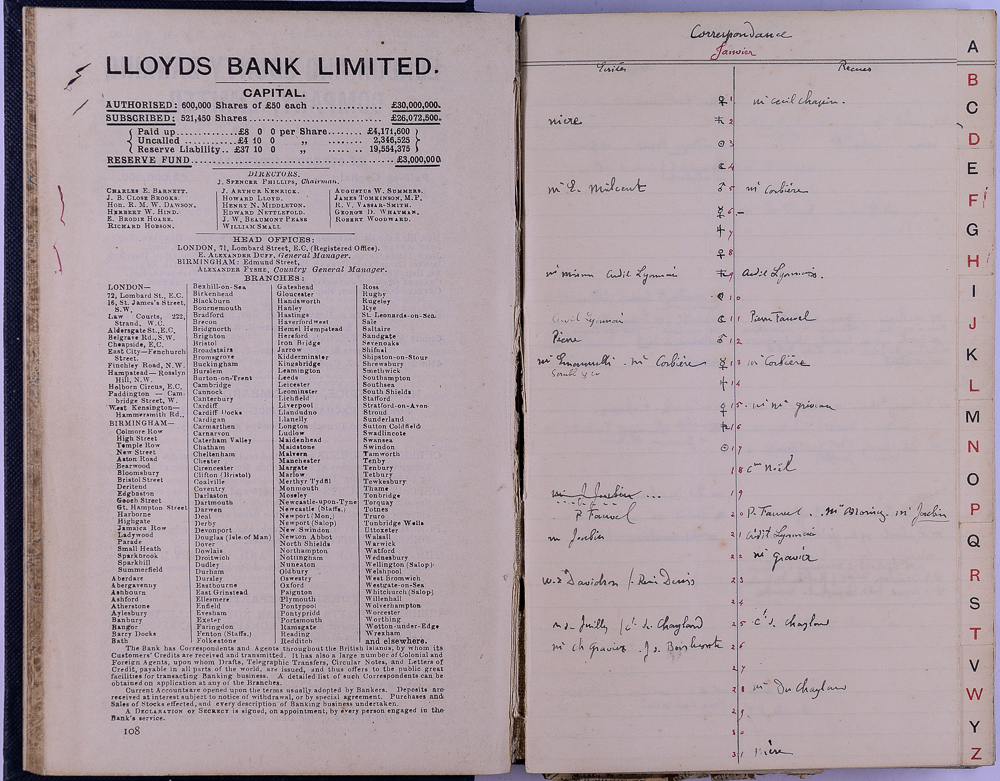 LLOYDS BANK LIMITED.
CAPITAL.
AUTHORISED: 600,000 Shares of £50 each ............... £30,000,000.
SUBSCRIBED: 521,450 Shares ........................... £26,072,500.
Paid up ............. £8 0 0 per Share ........ £4,171,600
Uncalled ............ £4 10 0 „ ........ 2,346,525
Reserve Liability .. £37 10 0 „ ........ 19,554,375
RESERVE FUND ........................................ £3,000,000
DIRECTORS.
J. SPENCER PHILLIPS, Chairman.
CHARLES E. BARNETT.
J. B. CLOSE BROOKS.
HON. R. M. W. DAWSON.
HERBERT W. HIND.
E. BRODIE HOARE.
RICHARD HOBSON.
J. ARTHUR KENRICK.
HOWARD LLOYD.
HENRY N. MIDDLETON.
EDWARD NETTLEFOLD.
J. W. BEAUMONT PEASE
WILLIAM SMALL
AUGUSTUS W. SUMMERS.
JAMES TOMKINSON, M.P.
R. V. VASSAR-SMITH.
GEORGE D. WHATMAN.
ROBERT WOODWARD.
HEAD OFFICES:
LONDON, 71, Lombard Street, E.C. (Registered Office).
E. ALEXANDER DUFF, General Manager.
BIRMINGHAM: Edmund Street,
ALEXANDER FYSHE, Country General Manager.
BRANCHES:
LONDON—
72, Lombard St., E.C.
16, St. James's Street,
S.W.
Law Courts, 222,
Strand, W.C.
Aldersgate St., E.C.
Belgrave Rd., S.W.
Cheapside, E.C.
East City—Fenchurch
Street.
Finchley Road, N.W.
Hampstead—Rosslyn
Hill, N.W.
Holborn Circus, E.C.
Paddington — Cam-
bridge Street, W.
West Kensington—
Hammersmith Rd.,
BIRMINGHAM—
Colmore Row
High Street
Temple Row
New Street
Aston Road
Bearwood
Bloomsbury
Bristol Street
Deritend
Edgbaston
Gooch Street
Gt. Hampton Street
Harborne
Highgate
Jamaica Row
Ladywood
Parade
Small Heath
Sparkbrook
Sparkhill
Summerfield
Aberdare
Abergavenny
Ashbourn
Ashford
Atherstone
Aylesbury
Banbury
Bangor
Barry Docks
Bath
Bexhill-on-Sea
Birkenhead
Blackburn
Bournemouth
Bradford
Brecon
Bridgnorth
Brighton
Bristol
Broadstairs
Bromsgrove
Buckingham
Burslem
Burton-on-Trent
Cambridge
Cannock
Canterbury
Cardiff
Cardiff Docks
Cardigan
Carmarthen
Carnarvon
Caterham Valley
Chatham
Cheltenham
Chester
Cirencester
Clifton (Bristol)
Coalville
Coventry
Darlaston
Dartmouth
Darwen
Deal
Derby
Devonport
Douglas (Isle of Man)
Dover
Dowlais
Droitwich
Dudley
Durham
Dursley
Eastbourne
East Grinstead
Ellesmere
Enfield
Evesham
Exeter
Faringdon
Fenton (Staffs.)
Folkestone
Gateshead
Gloucester
Handsworth
Hanley
Hastings
Haverfordwest
Hemel Hempstead
Hereford
Iron Bridge
Jarrow
Kidderminster
Kingsbridge
Leamington
Leeds
Leicester
Leominster
Lichfield
Liverpool
Llandudno
Llanelly
Longton
Ludlow
Maidenhead
Maidstone
Malvern
Manchester
Margate
Marlow
Merthyr Tydfil
Monmouth
Moseley
Newcastle-upon-Tyne
Newcastle (Staffs.)
Newport (Mon.)
Newport (Salop)
New Swindon
Newton Abbot
North Shields
Northampton
Nottingham
Nuneaton
Oldbury
Oswestry
Oxford
Paignton
Plymouth
Pontypool
Pontypridd
Portsmouth
Ramsgate
Reading
Redditch
Ross
Rugby
Rugeley
Rye
St. Leonards-on-Sea
Sale
Saltaire
Sandgate
Sevenoaks
Shifnal
Shipston-on-Stour
Shrewsbury
Smethwick
Southampton
Southsea
South Shields
Stafford
Stratford-on-Avon
Stroud
Sunderland
Sutton Coldfield
Swadlincote
Swansea
Swindon
Tamworth
Tenby
Tenbury
Tetbury
Tewkesbury
Thame
Tonbridge
Torquay
Totnes
Truro
Tunbridge Wells
Uttoxeter
Walsall
Warwick
Watford
Wednesbury
Wellington (Salop)
Welshpool
West Bromwich
Westgate-on-Sea
Whitchurch (Salop)
Willenhall
Wolverhampton
Worcester
Worthing
Wotton-under-Edge
Wrexham
and elsewhere.
The Bank has Correspondents and Agents throughout the British Islands, by whom its
Customers' Credits are received and transmitted. It has also a large number of Colonial and
Foreign Agents, upon whom Drafts, Telegraphic Transfers, Circular Notes, and Letters of
Credit, payable in all parts of the world, are issued, and thus offers to the public great
facilities for transacting Banking business. A detailed list of such Correspondents can be
obtained on application at any of the Branches.
Current Accounts are opened upon the terms usually adopted by Bankers. Deposits are
received at interest subject to notice of withdrawal, or by special agreement. Purchases and
Sales of Stocks effected, and every description of Banking business undertaken.
A DECLARATION OF SECRECY is signed, on appointment, by every person engaged in the
Bank's service.
108
Correspondance
Janvier
Ecrites Recues
♀ 1 Mr Cecil Chapin.
mère ♄ 2
☉ 3
☾ 4
♂ 5 Mr Corbière
☿ 6 —
♃ 7
♀ 8
Crédit Lyonnais ♄ 9 Crédit Lyonnais.
10
Crédit Lyonnais ☾ 11 Pierre Fauvel
Pierre ♂ 12
Mr Corbière ☿ 13 Mr Corbière
14
♀ 15
♄ 16
☉ 17
18 Noël
19
P. Fauvel 20 P. Fauvel. Mr Joubin
Joubin 21 Crédit Lyonnais
22 Mr Gravier
Davidson / 23
24
Juilly / de Chayland 25 de Chayland
Mr Ch Gravier. 26
27
28 Mr Du Chayland
29
30
31 mère
A
B
C
D
E
F
G
H
I
J
K
L
M
N
O
P
Q
R
S
T
V
W
Y
Z